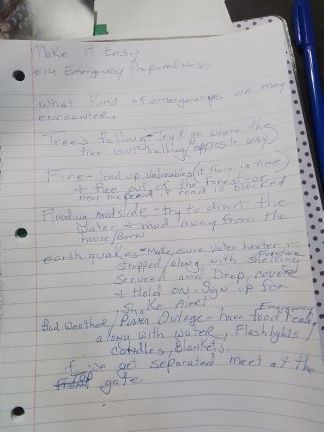 Make it Easy
#14 Emergency Preparedness
What kind of emergencys we may
encounter.
Trees falling - Try & go where the
tree isn't falling (opposite way)
Fire - load up valuables (if there is time)
& flee out of the forest - or
near the pond if road is blocked
Flooding mudslide - try to divert the
water & mud away from the
house/Barn
earthquakes - make sure water heater is
strapped/along with shelving
Secured and Drop, cover
& Hold on. Sign up for
Shake Alert
Bad Weather/Power Outage - have food ready Emergency
along with water, Flashlights/
candles, Blankets,
if we get separated meet at the
Top
gate